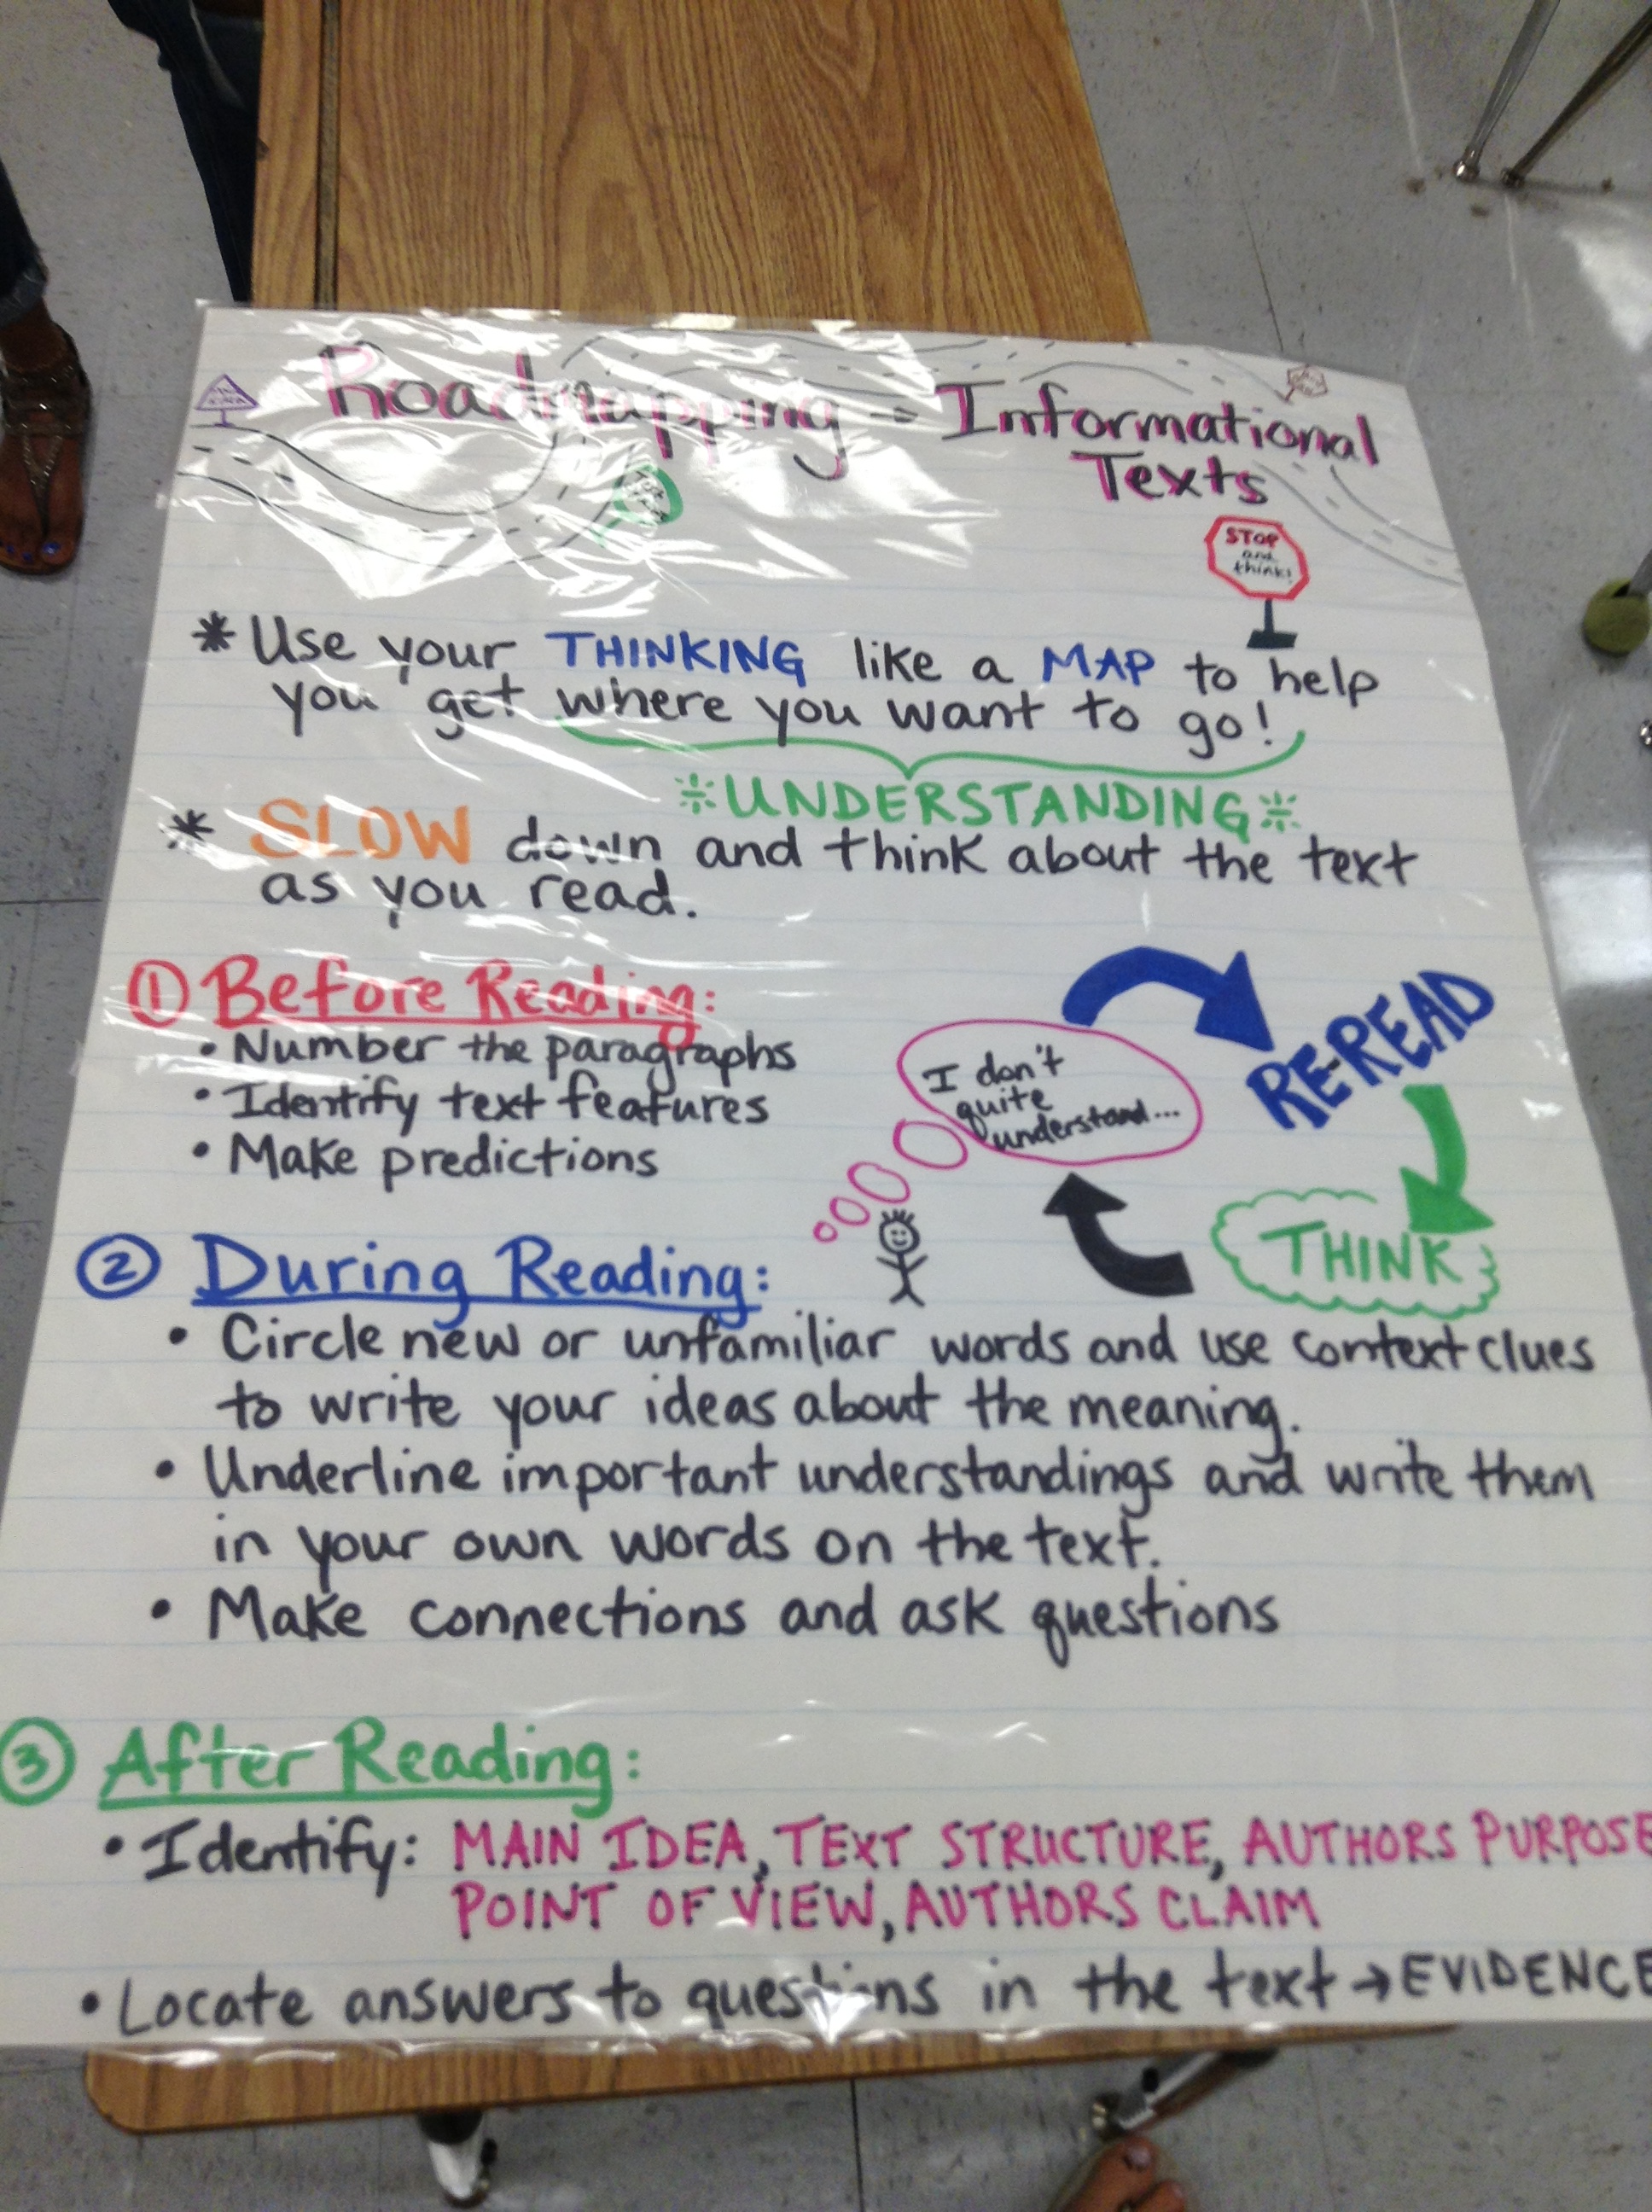 Roadmapping - Informational
Texts
STOP
and
think!
* Use your THINKING like a MAP to help
you get where you want to go!
UNDERSTANDING
* SLOW down and think about the text
as you read.
① Before Reading:
• Number the paragraphs
• Identify text features
• Make predictions
I don't
quite
understand...
RE-READ
THINK
② During Reading:
• Circle new or unfamiliar words and use context clues
to write your ideas about the meaning.
• Underline important understandings and write them
in your own words on the text.
• Make connections and ask questions
③ After Reading:
• Identify: MAIN IDEA, TEXT STRUCTURE, AUTHORS PURPOSE
POINT OF VIEW, AUTHORS CLAIM
• Locate answers to questions in the text → EVIDENCE